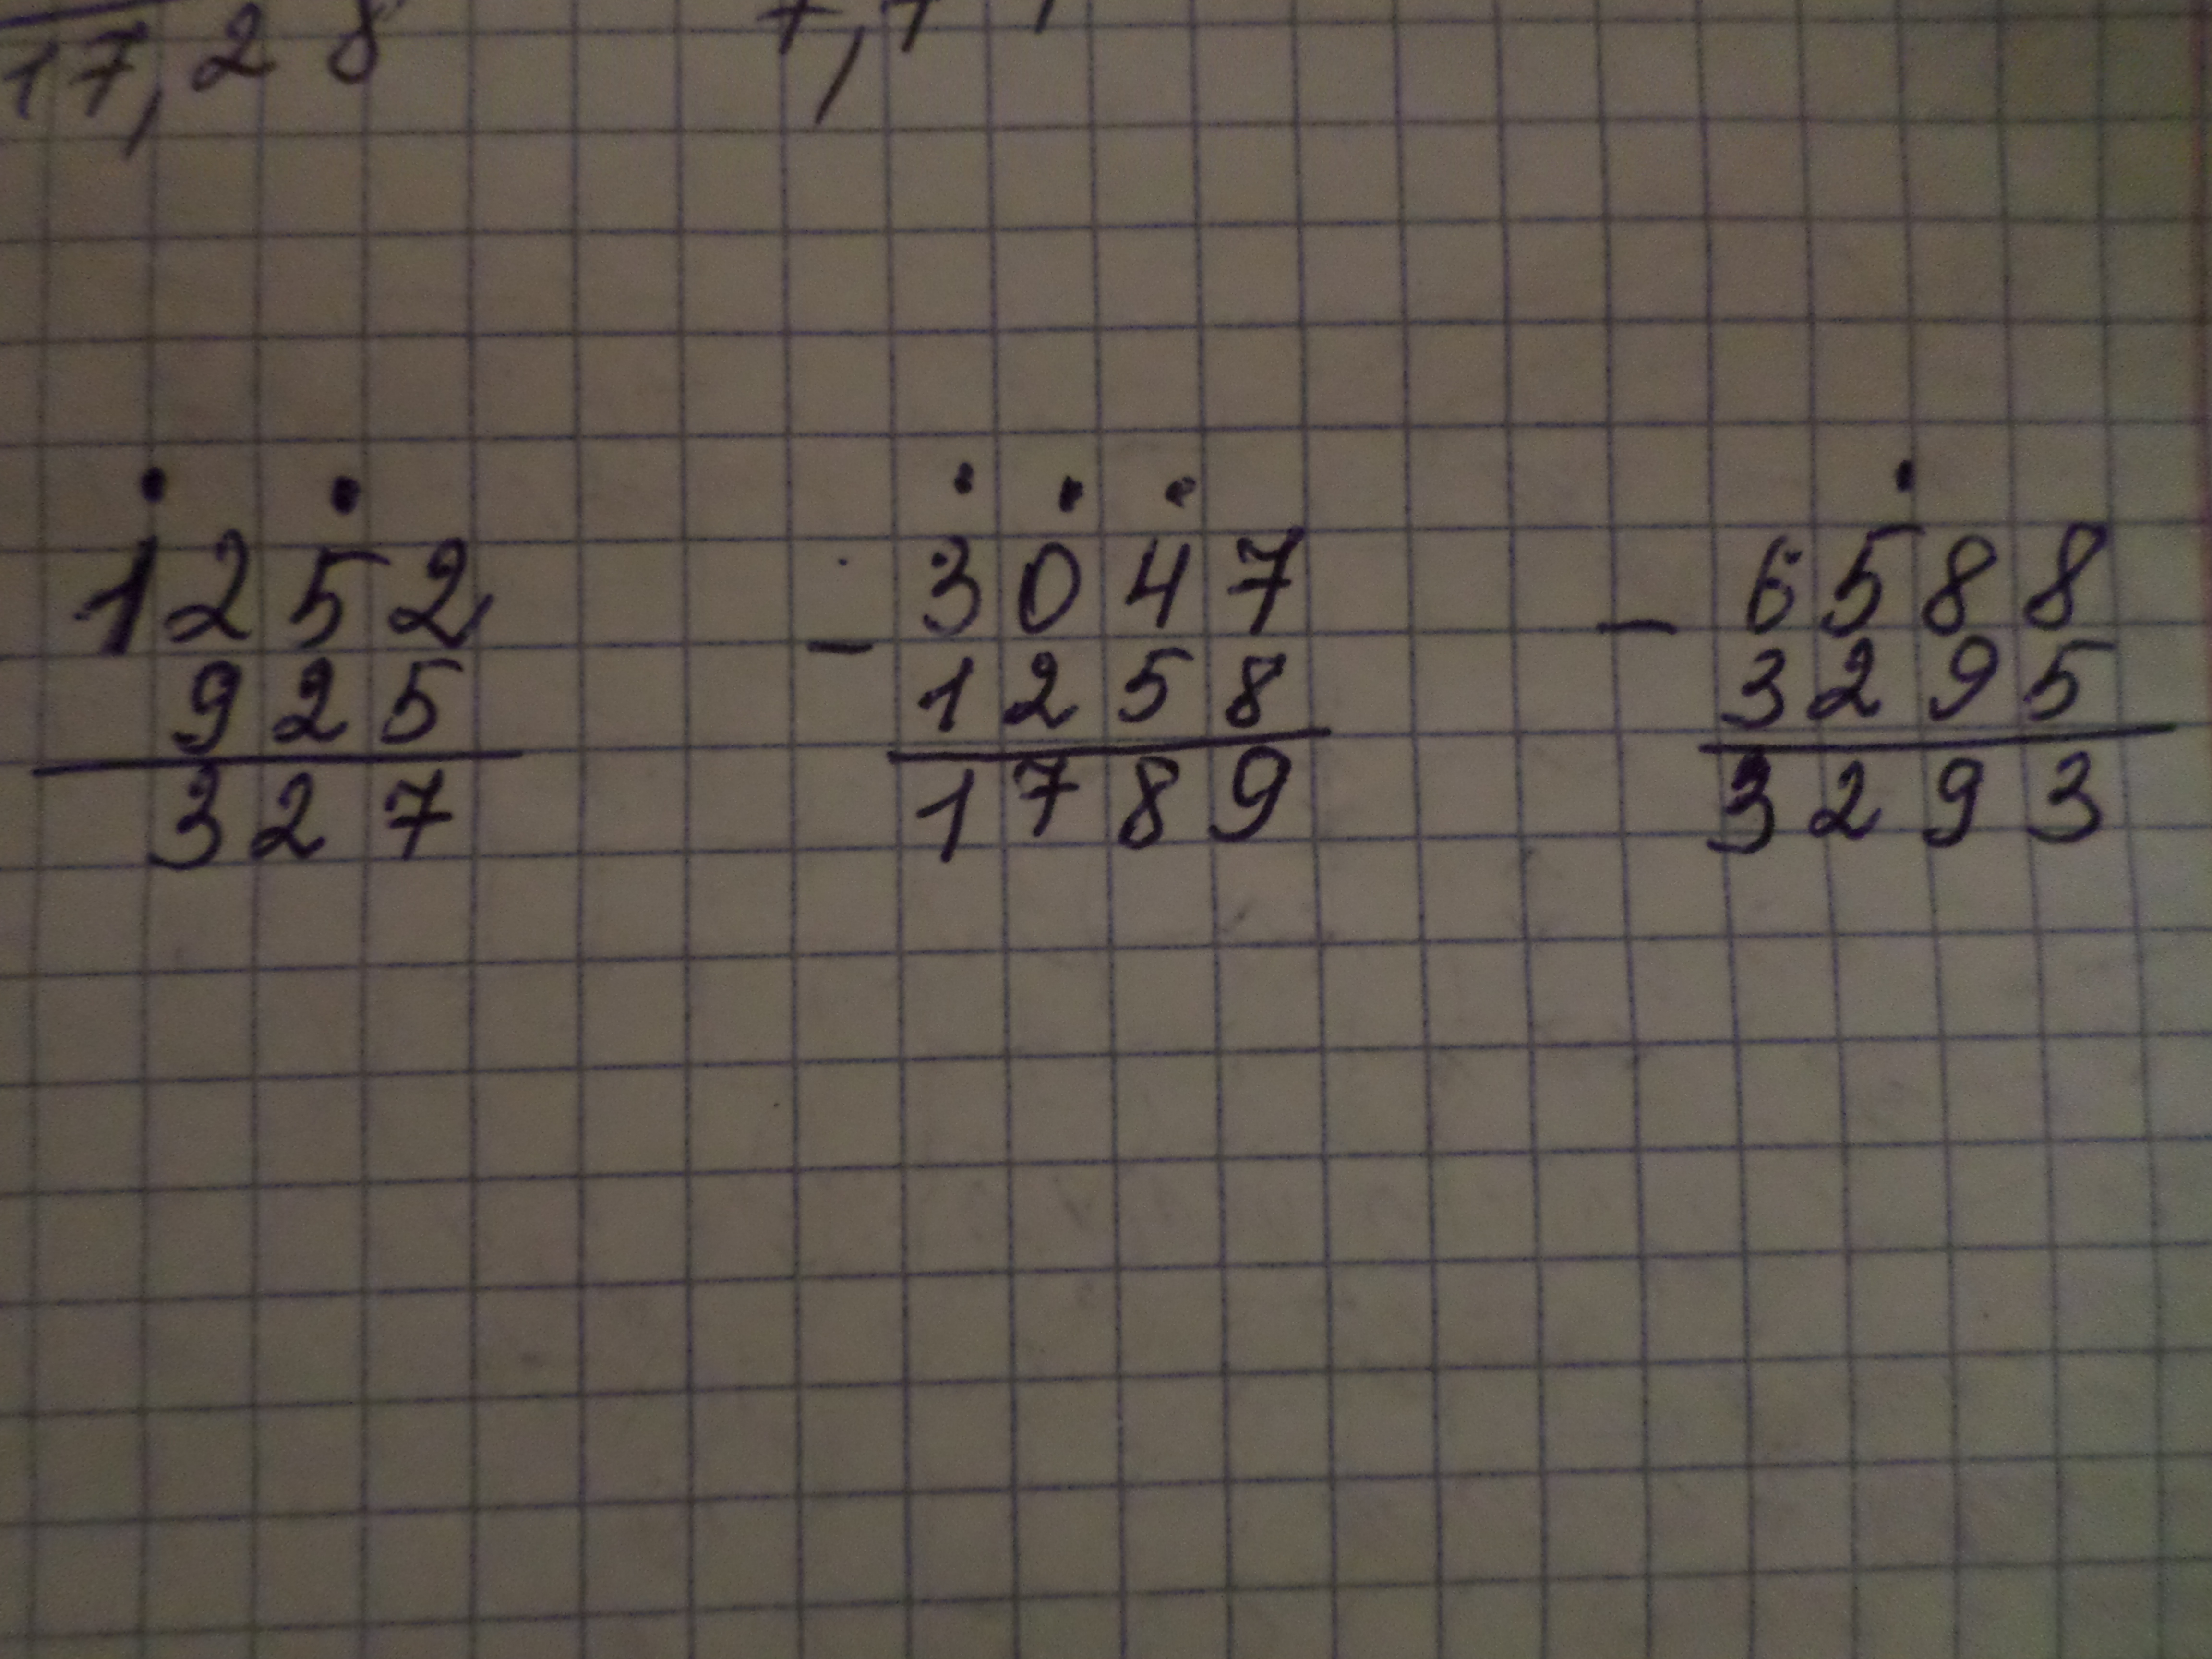 17,28
1252
925
327
- 3047
1258
1789
- 6588
3295
3293